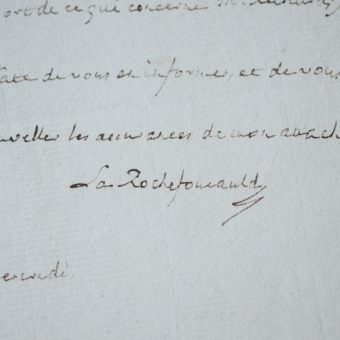 ort de ce qui concerne M.
hate de vous en informer, et de vous
uveller les assurances de mon attach
La Rochefoucauld
ercredi